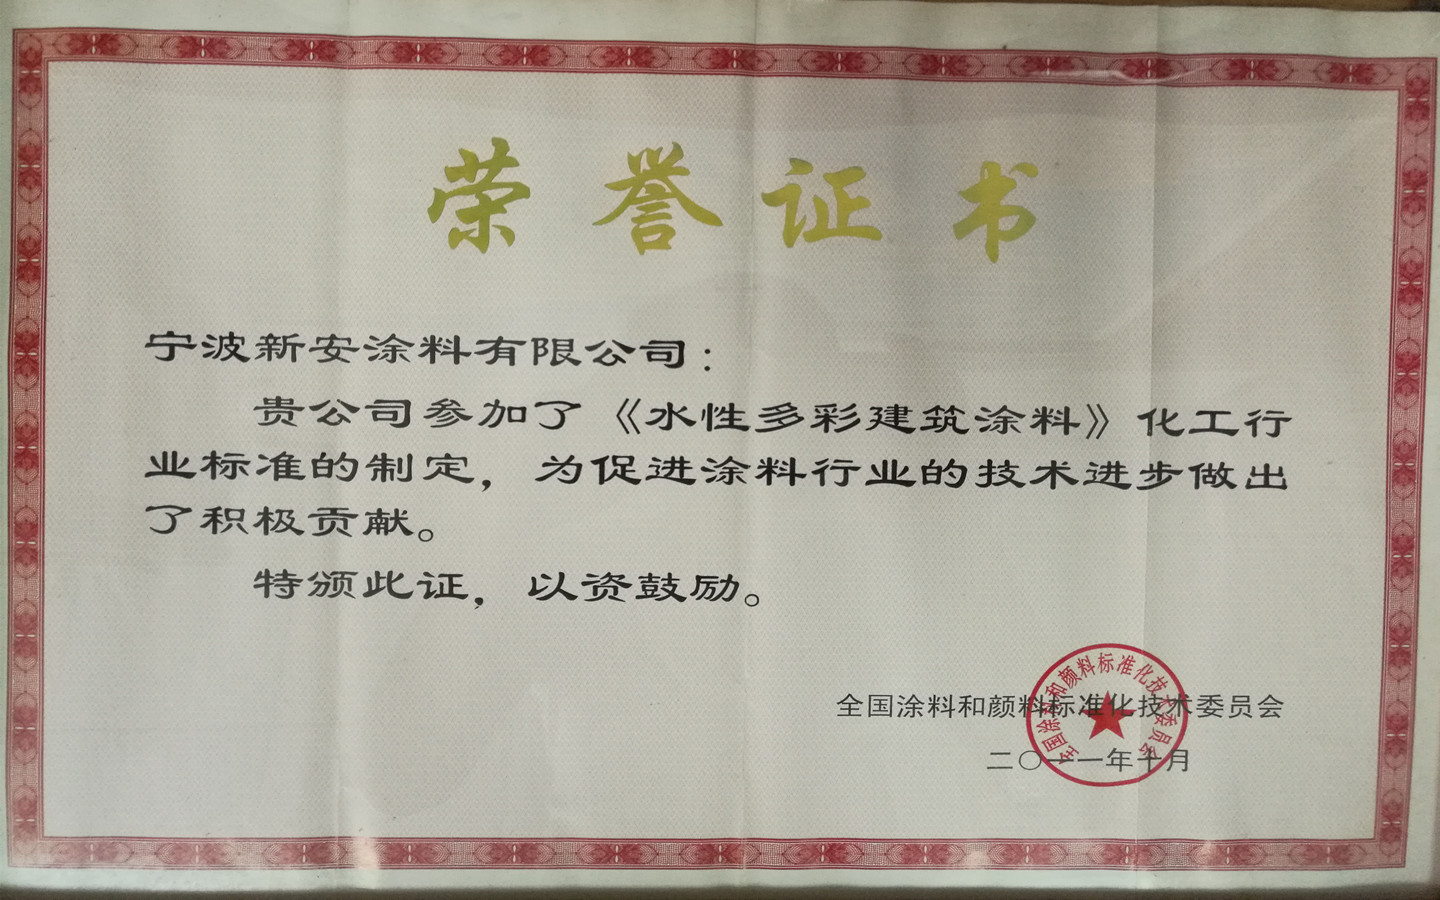 荣誉证书
宁波新安涂料有限公司：
贵公司参加了《水性多彩建筑涂料》化工行
业标准的制定，为促进涂料行业的技术进步做出
了积极贡献。
特颁此证，以资鼓励。
全国涂料和颜料标准化技术委员会
二〇一一年十月
全国涂料和颜料标准化技术委员会